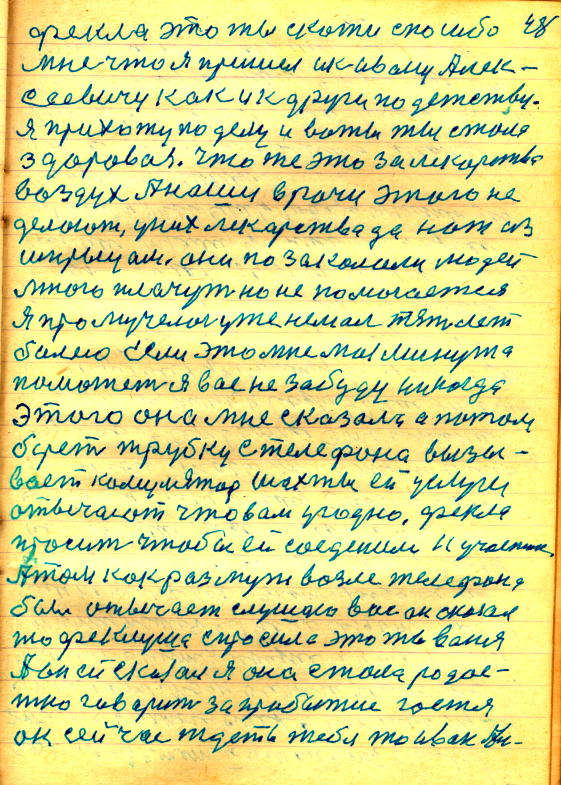 фекла это ты скажи спасибо 48
мне что я пришел ик ивану Алек-
сеевичу как и к другу по детству.
я прихожу по делу и вот ты стала
здоровая. что же это за лекарства
воздух А наши врачи этого не
делают, у них лекарства да нож из
шпрыцам. они позакололи людей
много плачут но не помогается
я промучелог уже немал пять лет
болею Если это мне моя минута
поможет я вас не забуду никогда
этого она мне сказала а потом
берет трубку с телефона вызы-
вает комумятор шахты ей услуги
отвечают что вам угодно, фекла
просит чтобы ей соеденили 11 участок.
А там как раз муж возле телефона
был отвечает слушаю вас он сказал
то феклуша спросила это ты ваня
А он ей сказал я она стала радос-
тно гаварить за прибытие гостя
он сейчас ждеть тебя то иван Ан-